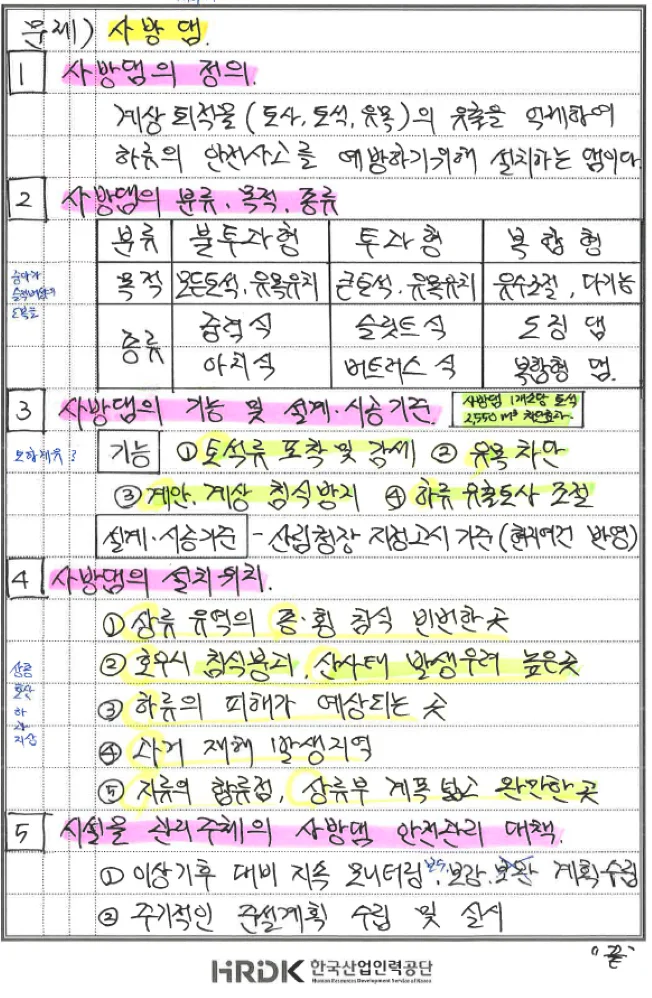 문제) 사방댐.
1 사방댐의 정의.
계상 퇴적물(토사, 토석, 유목)의 유출을 억제하여
하류의 안전사고를 예방하기위해 설치하는 댐이다.
2 사방댐의 분류. 목적. 종류
분류 불투과형 투과형 복합형
목적 모든토석. 유목유치 큰토석. 유목유치 유수조절, 다기능
종류 중력식 슬릿트식 도징댐
아치식 버트러스식 복합형 댐.
3 사방댐의 기능 및 설계·시공기준.
사방댐 1개소당 토석
2,550㎥ 차단효과
기능 ① 토석류 포착 및 감세 ② 유목 차단
③ 계안. 계상 침식방지 ④ 하류 유출토사 조절
설계·시공기준 - 산림청장 지정고시 기준(현지여건 반영)
4 사방댐의 설치위치.
① 상류 유역의 종·횡 침식 빈번한 곳
② 호우시 침식붕괴, 산사태 발생우려 높은곳
③ 하류의 피해가 예상되는 곳
④ 과거 재해 발생지역
상종
호산
하
과
지상
⑤ 지류의 합류점, 상류부 계폭 넓고 완만한 곳
5 시설물 관리주체의 사방댐 안전관리 대책.
① 이상기후 대비 지속 모니터링. 보수. 보강. 계획수립
② 주기적인 준설계획 수립 및 실시
"끝"
HRDK 한국산업인력공단
Human Resources Development Service of Korea